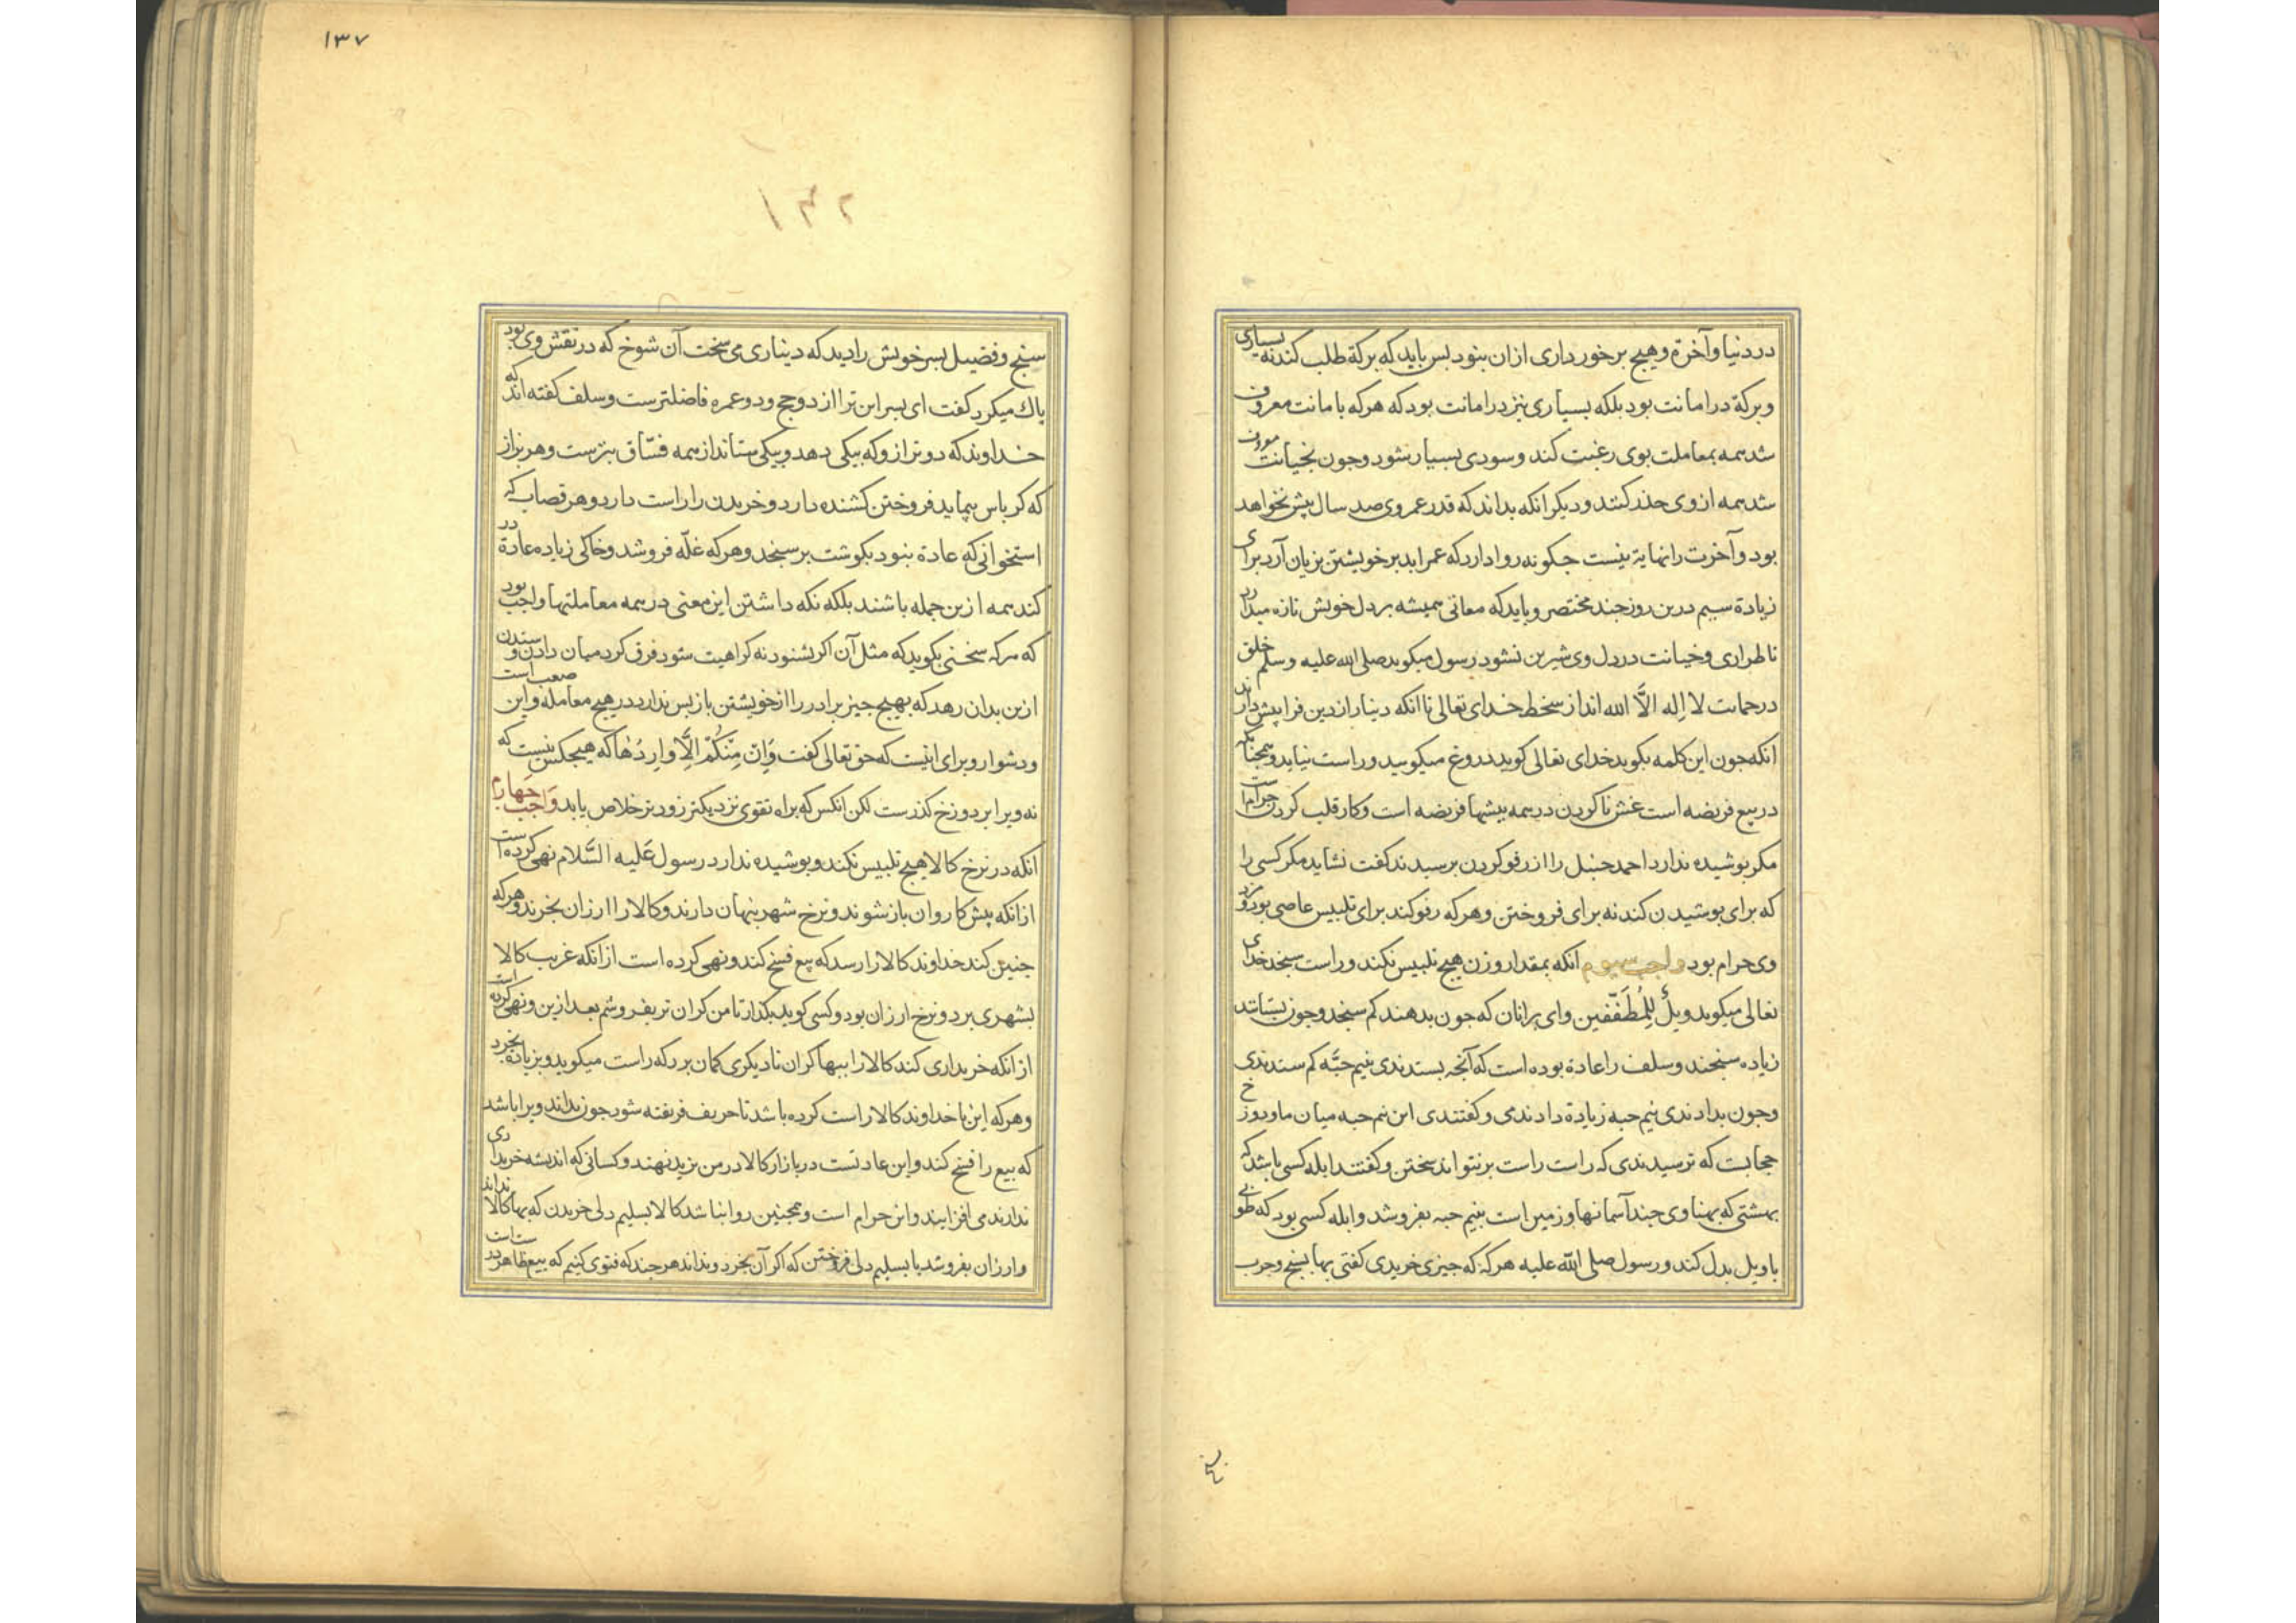 در دنیا و آخرة و هیچ برخورداری ازان بنود بس باید که برکة طلب کند نه بسیاری
و برکة در امانت بود بلکه بسیاری نیز در امانت بود که هرکه بامانت معروف
شد همه بمعاملت بوی رغبت کند و سودی بسیار شود و جون بخیانت معروف
شد همه از وی حذر کنند و دیکر انکه بداند که قدر عمر وی صد سال بیش نخواهد
بود و آخرت را نهایة نیست جکونه روا دارد که عمر ابد بر خویشتن بزیان آرد برای
زیادة سیم درین روز جند مختصر و باید که معانی همیشه بر دل خویش تازه میدارد
تا طراری و خیانت در دل وی شیرین نشود رسول میکوید صلی الله علیه وسلم خلق
در حمایت لا اله الّا الله اند از سخط خدای تعالی تا انکه دینار از دین فرا پیش دارند
انکه جون این کلمه بکوید خدای تعالی کوید دروغ میکویید و راست نیاید و همجنانکه
در بیع فریضه است غش ناکردن در همه بیشها فریضه است و کار قلب کردن حرام است
مکر بوشیده ندارد احمد حنبل را از رفو کردن برسیدند کفت نشاید مکر کسی را
که برای بوشیدن کند نه برای فروختن و هرکه رفو کند برای تلبیس عاصی بود و مزد
وی حرام بود واجب سیوم انکه بمقدار وزن هیچ تلبیس نکند و راست سنجد خدای
تعالی میکوید ویلٌ لِلمُطَفّفین وای برانان که جون بدهند کم سنجد و جون بستانند
زیاده سنجند و سلف را عادة بوده است که آنجه بستدندی بنیم حبّه کم ستدندی
و جون بدادندی نیم حبه زیادة دادندی و کفتندی این نیم حبه میان ما و دوزخ
حجابست که ترسیدندی که راست راست برنتواند سختن و کفتند ابله کسی باشد که
بهشتی که بهنای وی جند آسمانها و زمین است بنیم حبه بفروشد و ابله کسی بود که طوبی
با ویل بدل کند و رسول صلی الله علیه هرکه که جیزی خریدی کفتی بها بسنج و جرب
۱۳۷
سنج و فضیل بسر خویش را دید که دیناری می سخت آن شوخ که در نقش وی بود
باك میکرد کفت ای بسر این ترا از دو حج و دو عمره فاضلترست و سلف کفته اند که
خداوند که دو ترازو که بیکی دهد و بیکی ستاند از همه فسّاق بترست و هر بزاز
که کرباس بپماید فروختن کشنده دارد و خریدن را راست دارد و هر قصاب که
استخوانی که عادة بنود بکوشت بر سنجد و هرکه غلّه فروشد و خاکی زیاده عادة در
کند همه ازین جمله باشند بلکه نکه داشتن این معنی در همه معاملتها واجب بود
که هرکه سخنی بکوید که مثل آن اکر بشنود نه کراهیت شود فرق کرد میان دادن و ستدن
ازین بدان رهد که بهیچ جیز برادر را از خویشتن باز بس ندارد در هیچ معامله و این صعب است
و دشوار و برای اینست که حق تعالی کفت وَاِن مِنکُمْ اِلّا وارِدُها که هیچکس نیست که
نه ویرا بر دوزخ کذرست لکن انکس که براه تقوی نزدیکتر زودتر خلاص یابد واجب جهارم
انکه در نرخ کالا هیچ تلبیس نکند و بوشیده ندارد رسول عَلیه السَّلام نهی کرده است
از انکه بیش کاروان باز شوند و نرخ شهر بنهان دارند و کالا را ارزان بخرند و هرکه
جنین کند خداوند کالا را رسد که بیع فسخ کند و نهی کرده است از انکه غریب کالا
بشهری برد و نرخ ارزان بود و کسی کوید بکذار تا من کران تر بفروشم بعد ازین و نهی کرده است
از انکه خریداری کند کالا را ببها کران تا دیکری کمان برد که راست میکوید و بزیادة بخرد
و هرکه این با خداوند کالا راست کرده باشد تا حریف فریفته شود جون بداند ویرا باشد
که بیع را فسخ کند و این عادتست در بازار کالا در من یزید نهند و کسانی که اندیشه خریداری
ندارند می افزایند و این حرام است و همجنین روا نباشد کالا بسلیم دلی خریدن که بها کالا نداند
و ارزان بفروشد یا بسلیم دلی فروختن که اکر آن بخرد و نداند هر جند که فتوی کنیم که بیع ظاهر درست است